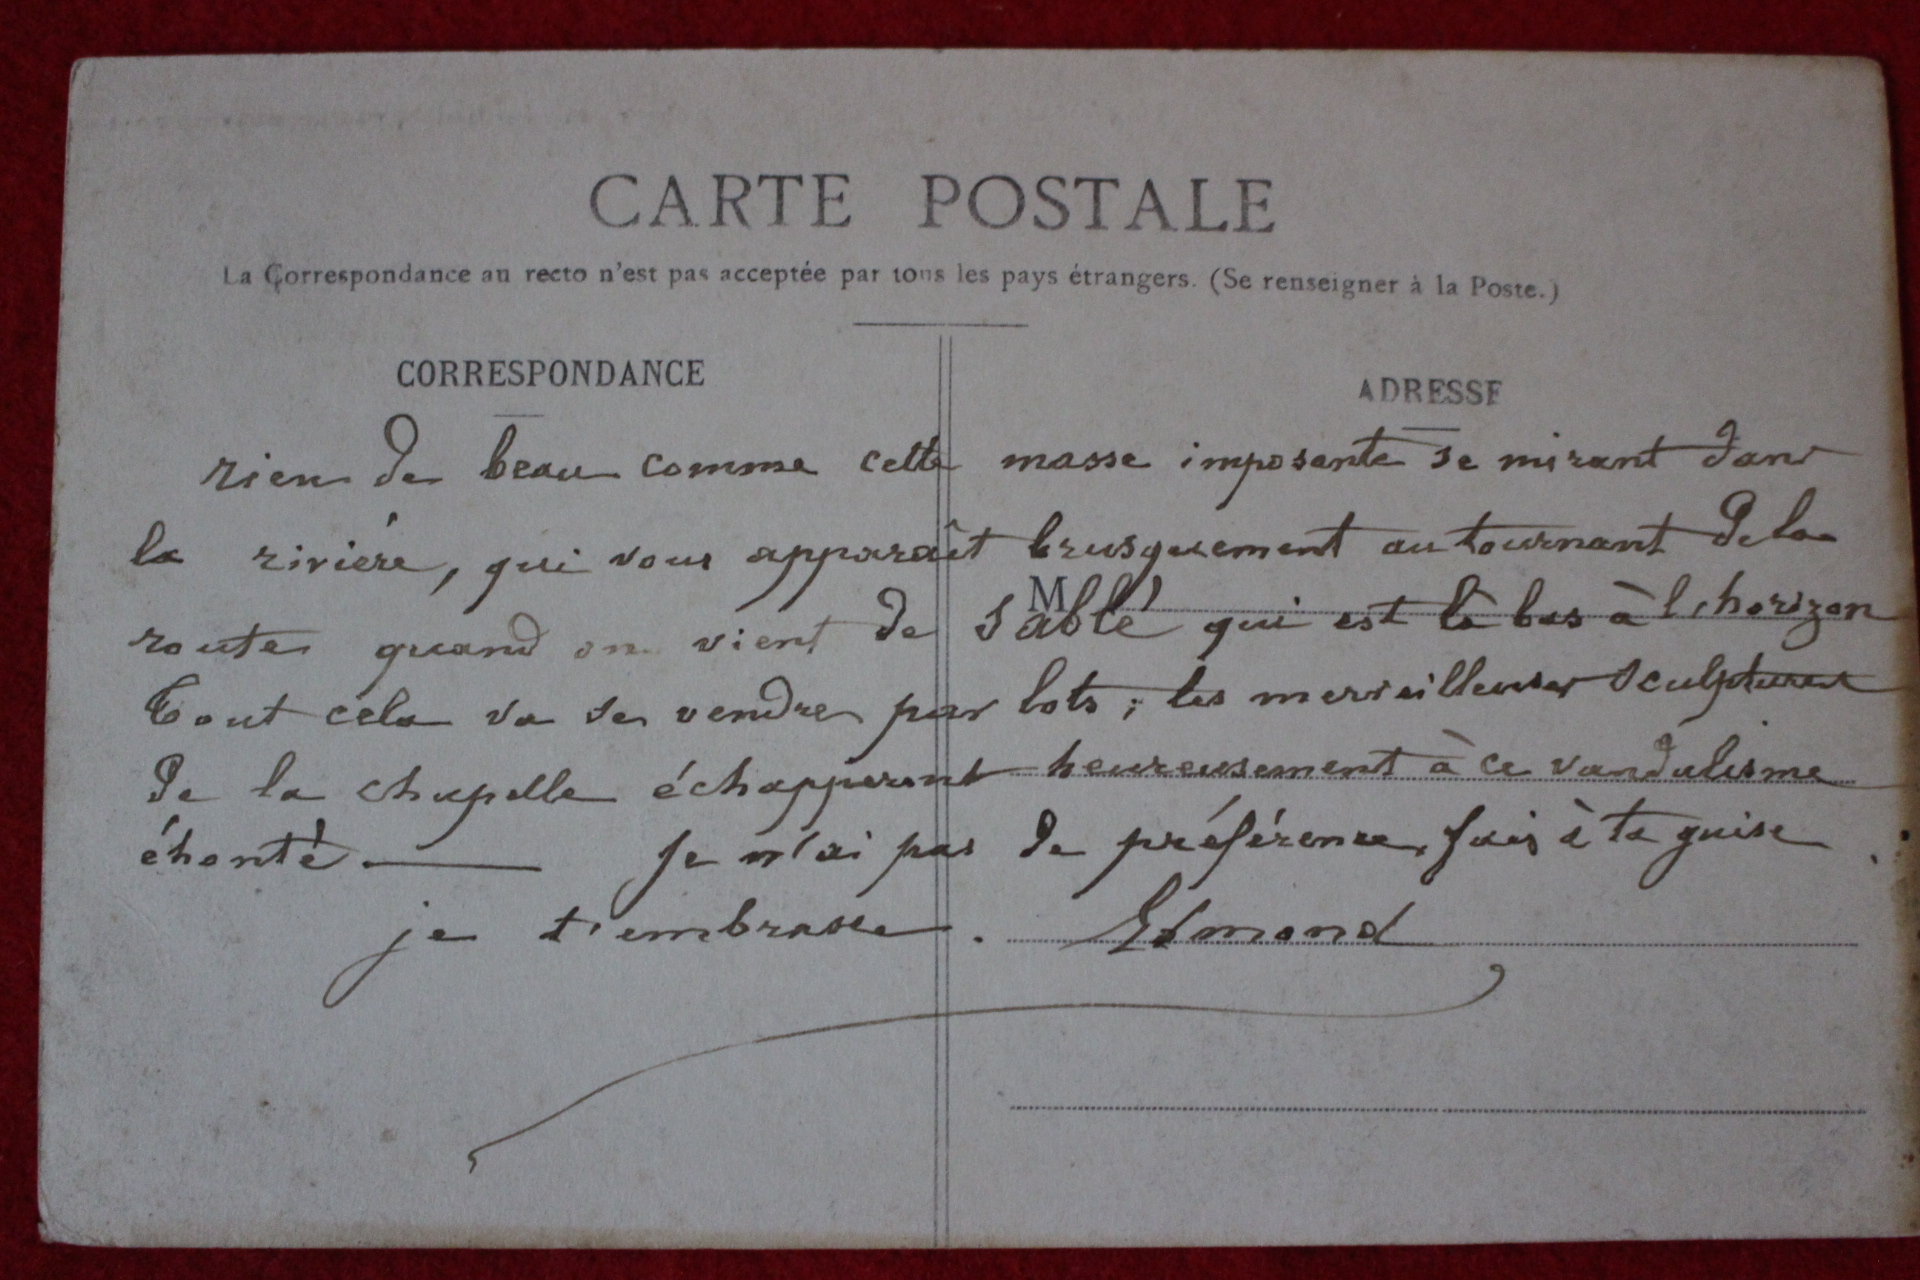 CARTE POSTALE
La Correspondance au recto n'est pas acceptée par tous les pays étrangers. (Se renseigner à la Poste.)
CORRESPONDANCE
ADRESSE
M
rien de beau comme cette masse imposante se mirant dans
la rivière, qui vous apparaît brusquement au tournant de la
route quand on vient de Sablé qui est là bas à l'horizon
Tout cela va se vendre par lots ; les merveilleuses sculptures
de la chapelle échapperont heureusement à ce vandalisme
éhonté. — Je n'ai pas de préférence, fais à ta guise
je t'embrasse. Edmond